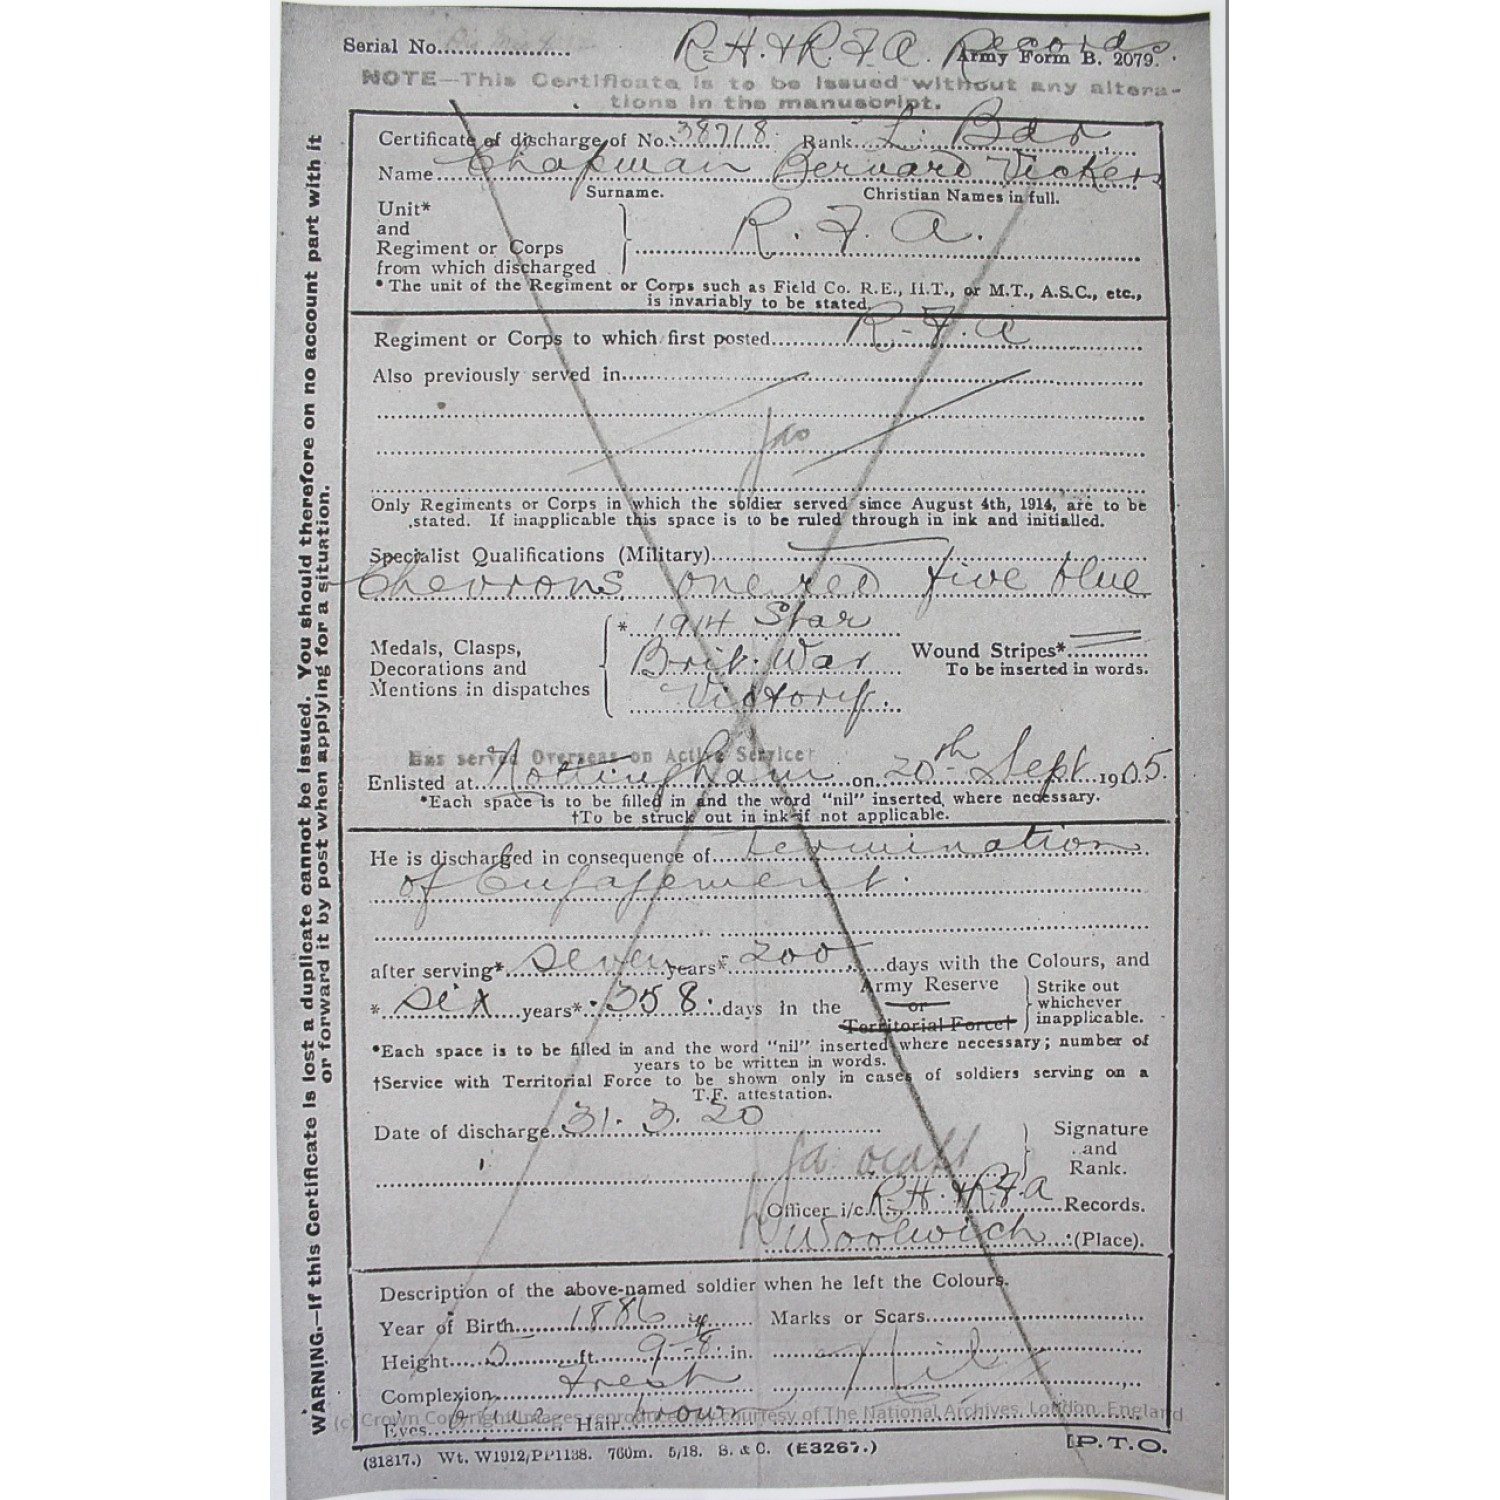 Serial No.................. R.H. & R.F.A. Records Army Form B. 2079.
NOTE—This Certificate is to be issued without any altera-
tions in the manuscript.
Certificate of discharge of No. 38718. Rank L. Bdr.
Name Chapman Bernard Vickers
Surname. Christian Names in full.
Unit*
and
Regiment or Corps
from which discharged
R. F. A.
* The unit of the Regiment or Corps such as Field Co. R.E., H.T., or M.T., A.S.C., etc.,
is invariably to be stated.
Regiment or Corps to which first posted R.F.A
Also previously served in
Only Regiments or Corps in which the soldier served since August 4th, 1914, are to be
stated. If inapplicable this space is to be ruled through in ink and initialled.
Specialist Qualifications (Military)
Chevrons one red five blue
Medals, Clasps,
Decorations and
Mentions in dispatches
* 1914 Star
Brit. War
Victory.
Wound Stripes*
To be inserted in words.
Has served Overseas on Active Service†
Enlisted at Nottingham on 20th Sept 1905.
*Each space is to be filled in and the word "nil" inserted where necessary.
†To be struck out in ink if not applicable.
He is discharged in consequence of Termination
of Engagement.
after serving* seven years* 200 days with the Colours, and
* six years* 358 days in the Army Reserve
or
Territorial Force†
Strike out
whichever
inapplicable.
*Each space is to be filled in and the word "nil" inserted where necessary; number of
years to be written in words.
†Service with Territorial Force to be shown only in cases of soldiers serving on a
T.F. attestation.
Date of discharge 31. 3. 20
Signature
and
Rank.
Officer i/c. R.H. & R.F.A Records.
Woolwich (Place).
Description of the above-named soldier when he left the Colours.
Year of Birth 1886 Marks or Scars
Height 5 ft. 9-8 in. Nil
Complexion Fresh
Eyes blue Hair brown
(c) Crown Copyright Images reproduced by courtesy of The National Archives, London, England
(31817.) Wt. W1912/PP1138. 760m. 5/18. S. & C. (E3267.) [P.T.O.
WARNING.—If this Certificate is lost a duplicate cannot be issued. You should therefore on no account part with it
or forward it by post when applying for a situation.